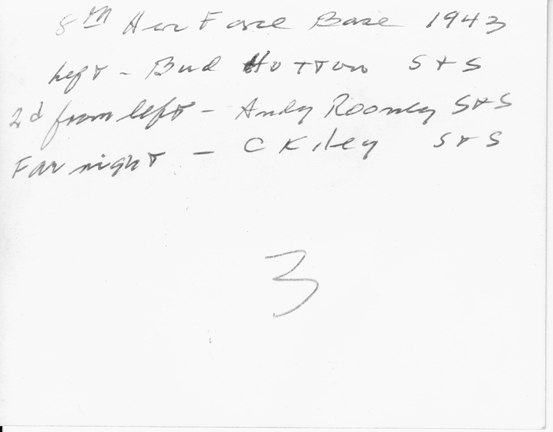 8th Air Force Base 1943
Left - Bud Hutton S & S
2d from left - Andy Rooney S & S
Far right - C Kiley S & S
3